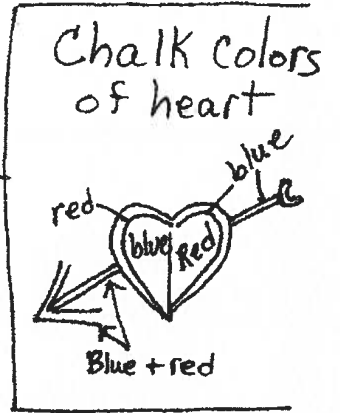 Chalk Colors
of heart
blue
red
blue Red
Blue + red